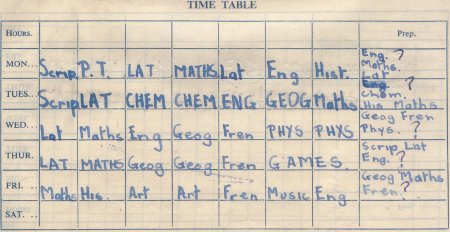 TIME TABLE
HOURS. Prep.
Eng. ?
MON... Scrip P.T. LAT MATHS Lat Eng Hist. Maths.
Lat
Eng. ?
TUES... Scrip LAT CHEM CHEM ENG GEOG Maths Chem.
His Maths
WED... Lat Maths Eng Geog Fren PHYS PHYS Geog Fren
Phys. ?
THUR... LAT MATHS Geog Geog Fren GAMES. Scrip Lat
Eng. ?
FRI... Maths His. Art Art Fren MUSIC Eng Geog Maths
Fren. ?
SAT...